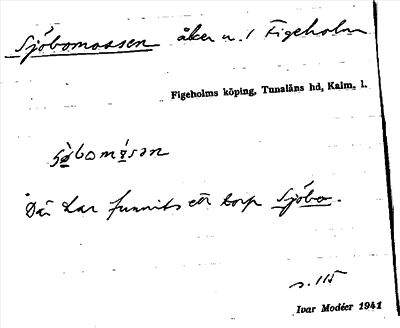 Sjöbomossen åker n. 1 Figeholm
Figeholms köping, Tunaläns hd, Kalm. l.
Där har funnits ett torp Sjöbo.
s. 115
Ivar Modéer 1941